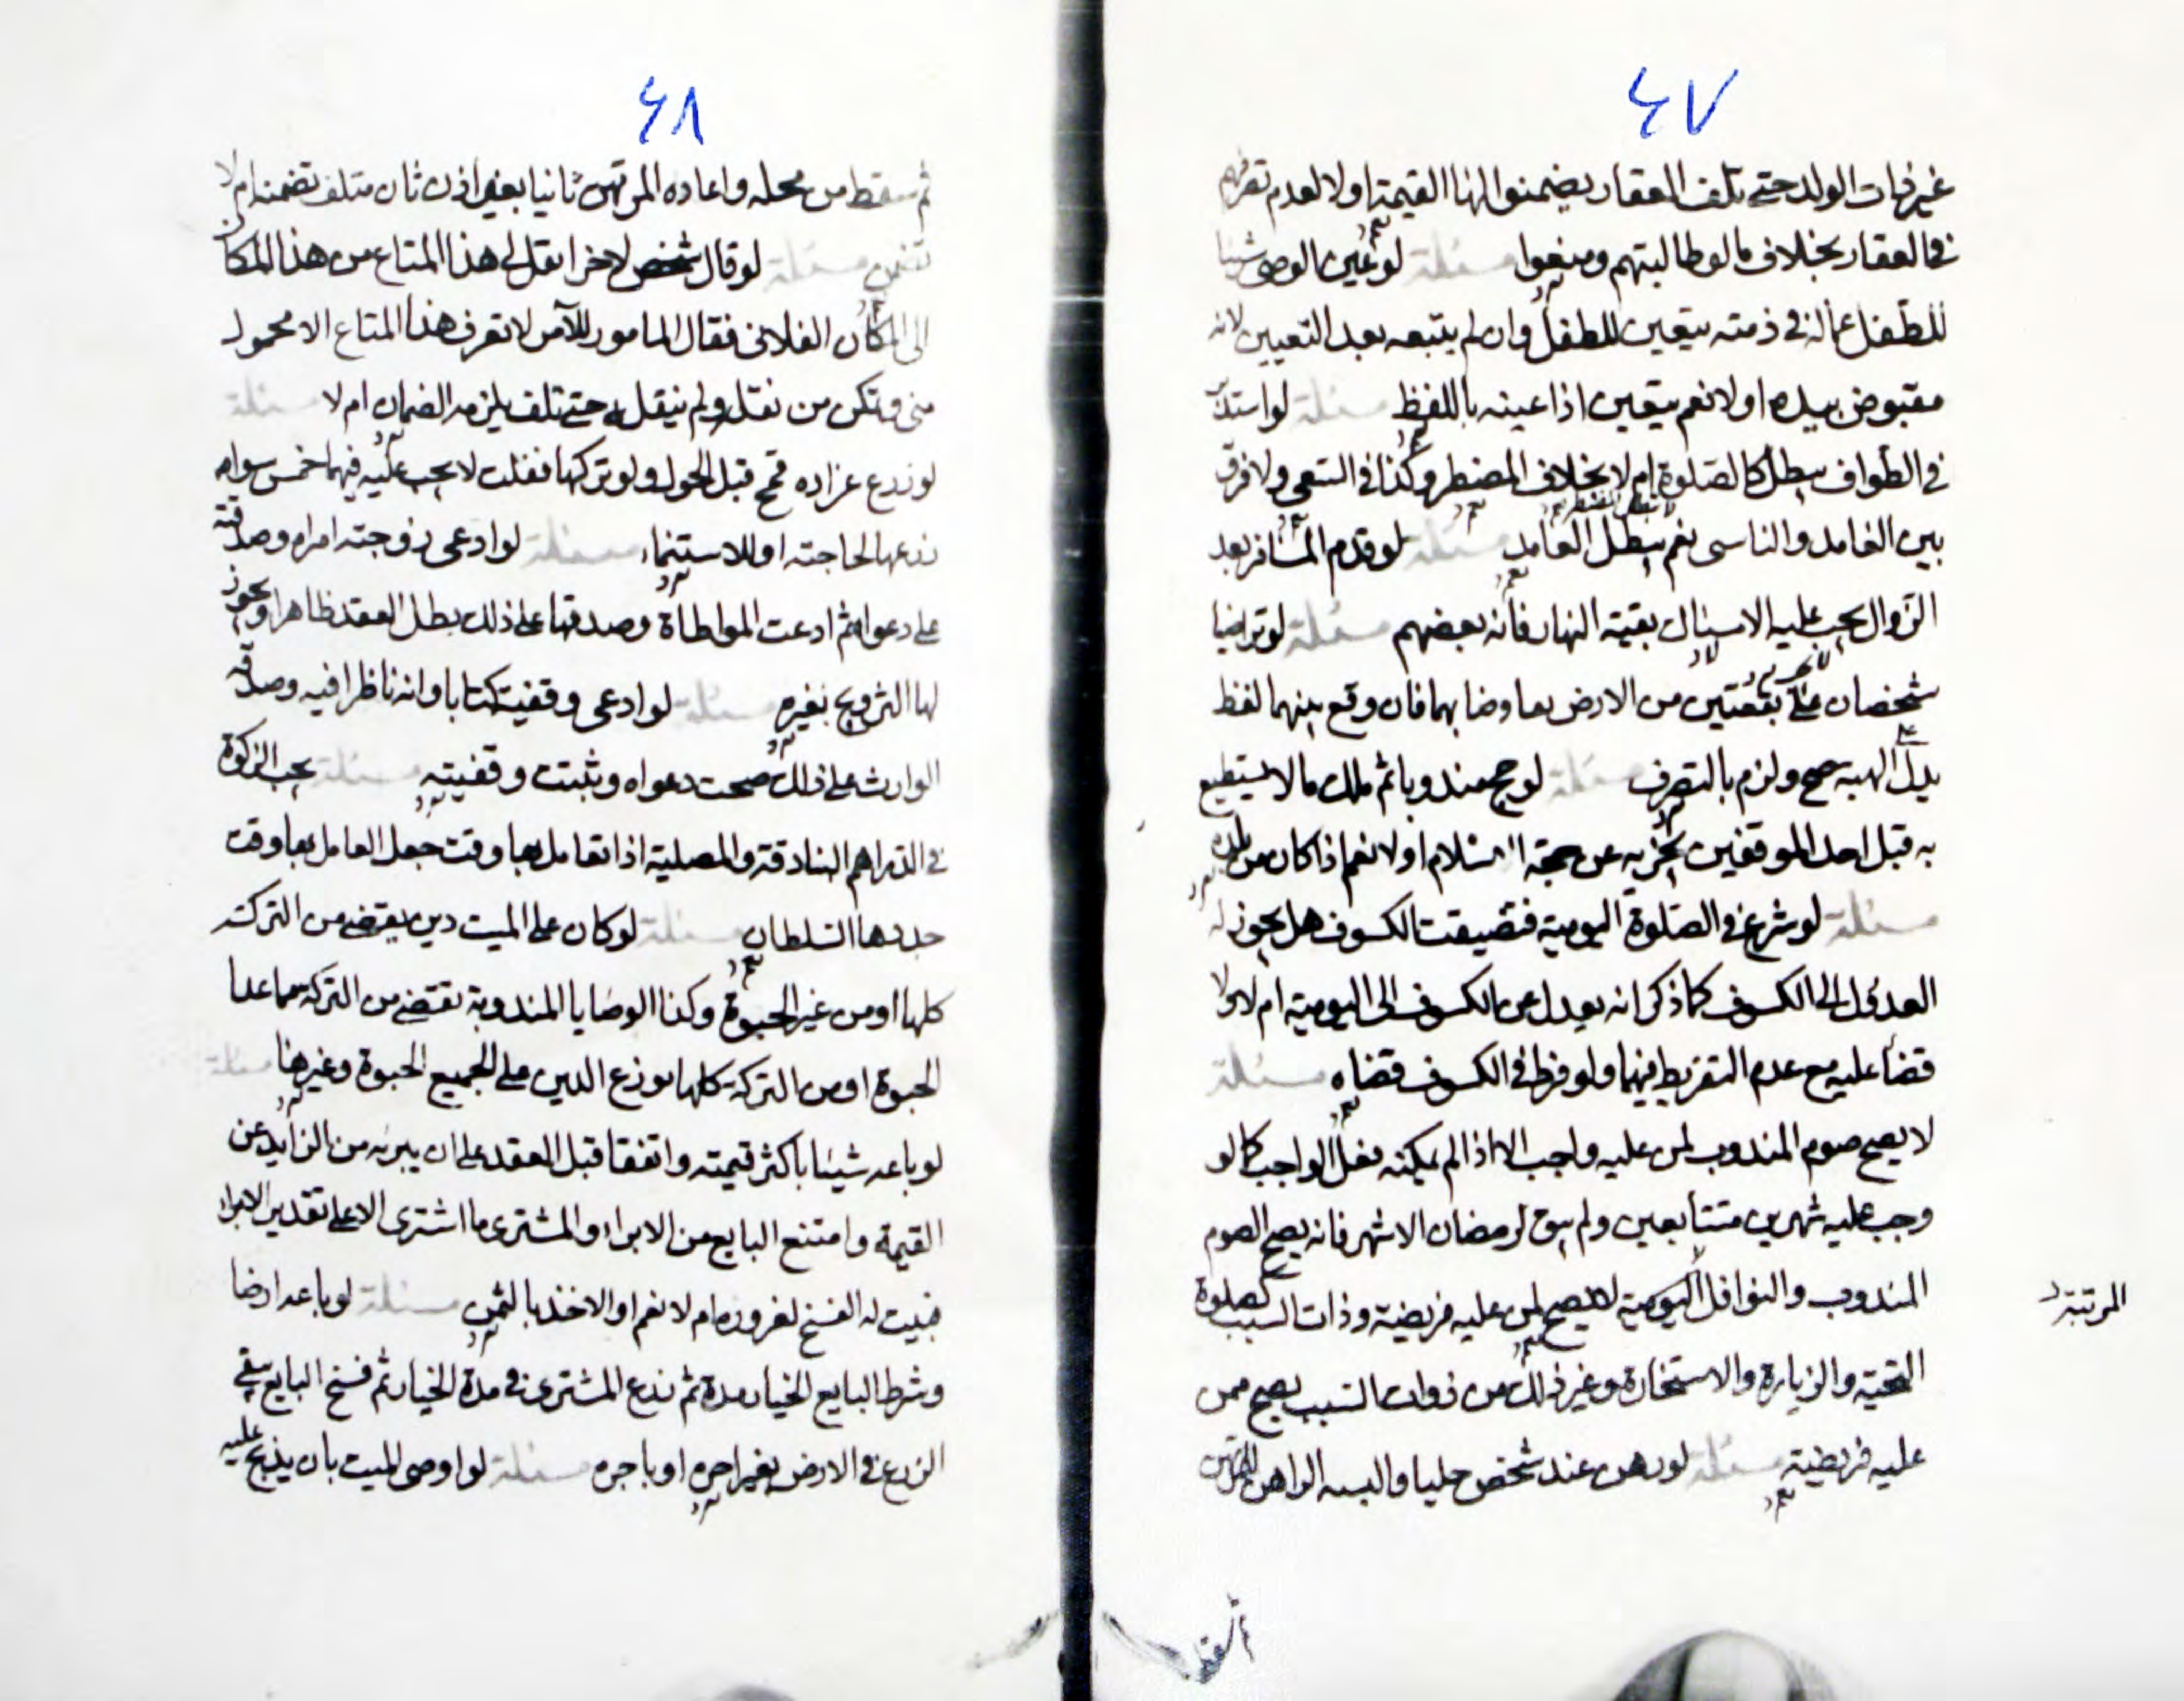 ٤٧
غير ذات الولد حتى تلف العقار يضمنوا لها القيمة اولا لعدم
في العقار بخلاف ما لو طالبتهم ومنعوا مسئلة لو عين الوصي شيئا
للطفل عماله في ذمته يتعين للطفل وان لم يتبعه بعد التعيين لانه
مقبوض بيده اولا نعم يتعين اذا عينه باللفظ مسئلة لو
في الطواف يبطل كالصلوة ام لا بخلاف المضطر وكذا في السعي ولا فرق
بين العامد والناسي نعم يبطل العامد مسئلة لو قدم المسافر بعد
الزوال يجب عليه الامساك بقية النهار بعضهم مسئلة لو تراضيا
شخصان على بقعتين من الارض تعاوضا بهما فان وقع بينهما لفظ
يدل على الهبة صح ولزم بالتصرف مسئلة لو حج مندوبا ثم ملك ما لا يستطيع
به قبل احد الموقفين يجزيه عن حجة الاسلام اولا نعم اذا كان من
مسئلة لو شرع في الصلوة اليومية فتضيقت الكسوف هل يجوز له
العدول الى الكسوف كما ذكر انه يعدل عن الكسوف الى اليومية ام لا ولا
قضا عليه مع عدم التفريط فيهما ولو فرط في الكسوف قضاه مسئلة
لا يصح صوم المندوب لمن عليه واجب الا اذا لم يمكنه فعل الواجب كما لو
وجب عليه شهرين متتابعين ولم يبق لرمضان الا شهر فانه يصح الصوم
المندوب والنوافل اليومية لا تصح لمن عليه فريضة وذات السبب كصلوة
المرتبة
التحية والزيارة والاستخارة وغير ذلك من ذوات السبب يصح ممن
عليه فريضة مسئلة لو رهن عند شخص حليا والبسه الراهن
٤٨
ثم سقط من محله واعاده المرتهن ثانيا بغير اذن ثان متلف تضمنه ام لا
مسئلة لو قال شخص لاخر انقل لي هذا المتاع من هذا المكان
الى المكان الفلاني فقال المامور للآمر لا تعرف هذا المتاع الا محمول
مني وتمكن من نقله ولم ينقله حتى تلف يلزمه الضمان ام لا مسئلة
لو زرع قمح قبل الحول ولو تركها لا يجب عليه فيهما خمس سواء
زرعها لحاجته او للاستنماء مسئلة لو ادعى زوجته امراه وصدقته
على دعواه ثم ادعت المواطاة وصدقها على ذلك بطل العقد ظاهرا ويجوز
لها التزويج بغيره مسئلة لو ادعى وقفية كتابا وانه ناظرا فيه وصدقه
الوارث على ذلك صحت دعواه وثبتت وقفيته مسئلة يجب الزكوة
في الدراهم البنادقة والمصلية اذا تعامل بها وقت جعل العامل بها وقت
حددها السلطان مسئلة لو كان على الميت دين يقضى من التركة
كلها او من غير الحبوة وكذا الوصايا المندوبة تقتضى من التركة مما عدا
الحبوة او من التركة كلها يوزع الدين على الجميع الحبوة وغيرها مسئلة
لو باعه شيئا باكثر قيمته واتفقا قبل العقد على ان يبريه من الزايد عن
القيمة وامتنع البايع من الابراء والمشتري ما اشترى الا على تقدير الابراء
فيثبت له الفسخ لغروره ام لا نعم او الاخذ بالثمن مسئلة لو باعه ارضا
وشرط البايع الخيار مدة ثم زرع المشتري في مدة الخيار ثم فسخ البايع يبقى
الزرع في الارض بغير اجره او باجره مسئلة لو اوصى الميت بان يذبح عليه